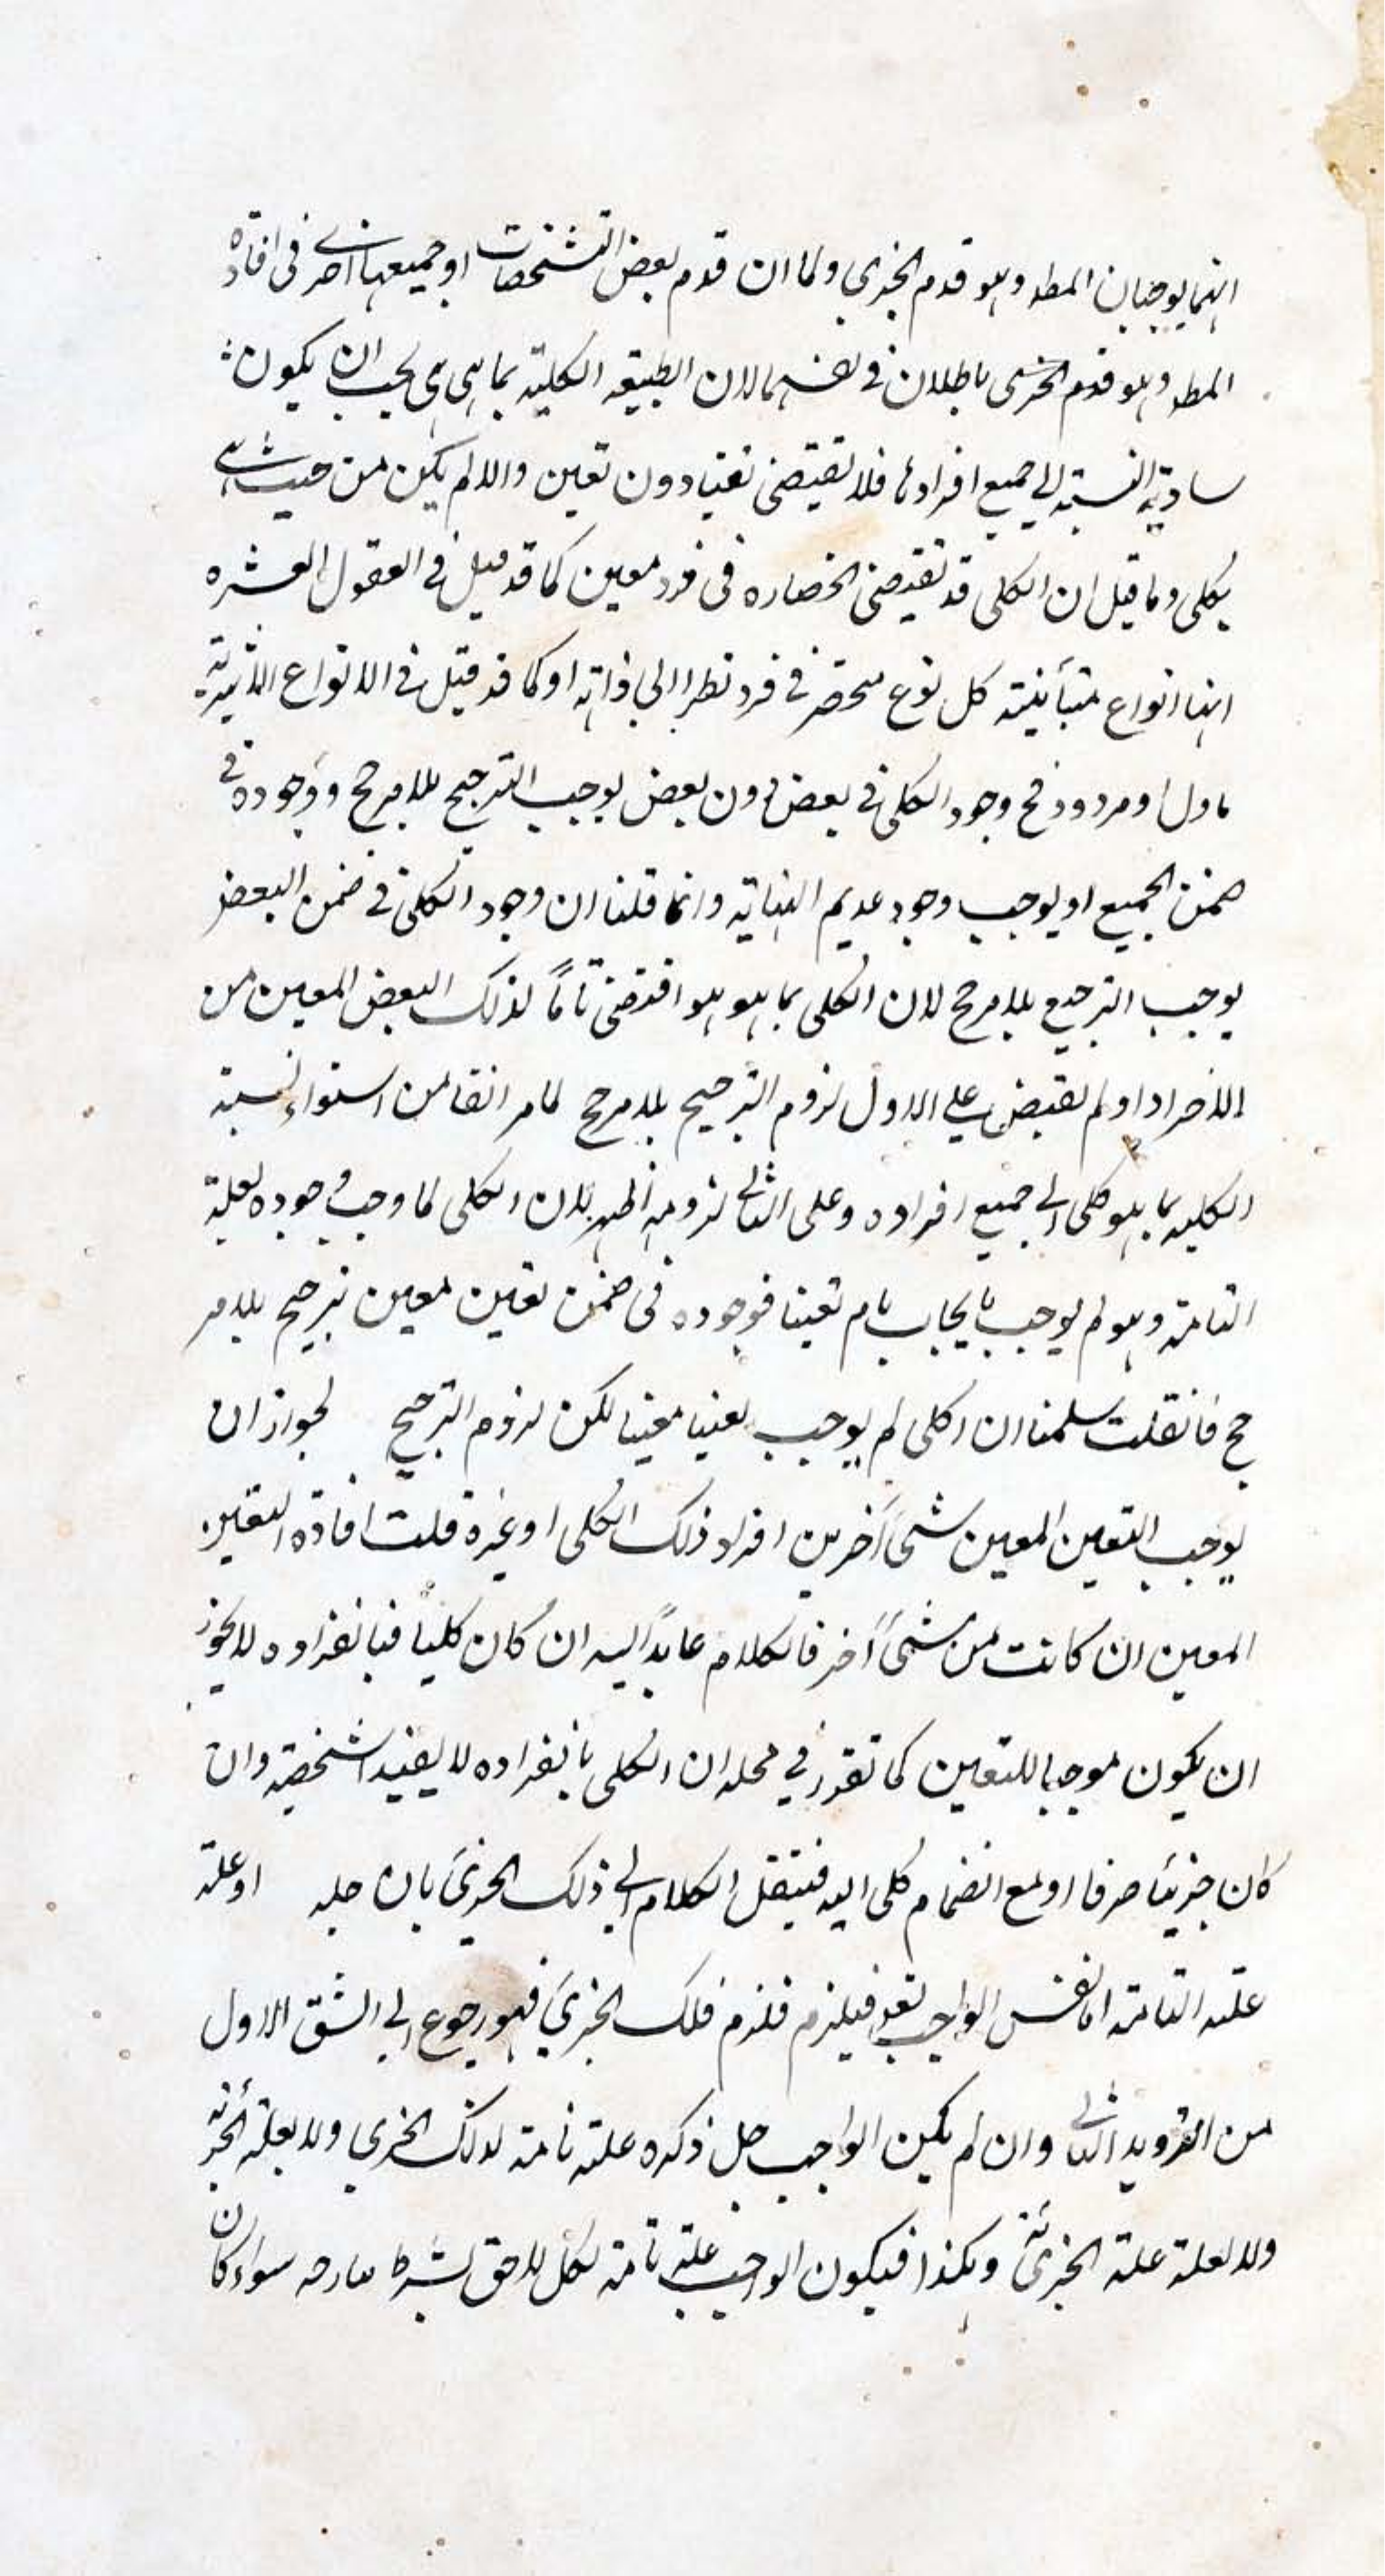 انهما يوجبان المط وهو قدم الجزي ولما ان قدم بعض التشخصات او جميعها في افادة
المط وهو قدم الجزئي باطلان في نفسهما لان الطبيعة الكلية بما هي هي يجب ان يكون
ساوية النسبة الى جميع افرادها فلا تقتضي تعينا دون تعين والا لم يكن من حيث هي
كلي وما قيل ان الكلي قد تقتضي انحصاره في فرد معين كما قد قيل في العقول العشره
انها انواع متبائنة كل نوع منحصر في فرد نظرا الى ذاته او كما قد قيل في الانواع الاثيرية
ماول او مردود فح وجود الكلي في بعض دون بعض يوجب الترجيح بلا مرجح ووجوده في
ضمن الجميع او يوجب وجود عديم النهاية وانما قلنا ان وجود الكلي في ضمن البعض
يوجب الترجيح بلا مرجح لان الكلي بما هو هو اقتضى تاما لذلك البعض المعين من
الافراد او لم يقتض على الاول لزوم الترجيح بلا مرجح لما مر انفا من استواء نسبة
الكلية بما هو كلي الى جميع افراده وعلى الثاني لزومه اظهر لان الكلي لما وجب وجوده لعلة
التامة وهو لم يوجب بايجاب تام تعينا فوجوده في ضمن تعين معين ترجيح بلا مر
جح فانقلت سلمنا ان اكلي لم يوجب تعينا معينا لكن لزوم الترجيح لجواز ان
يوجب التعين المعين شئ آخر من افراد ذلك الكلي او غيره قلت افادة التعين
المعين ان كانت من شئ آخر فالكلام عايد اليه ان كان كليا فبانفراده لا يجوز
ان يكون موجبا للتعين كما تقرر في محله ان الكلي بانفراده لا يفيد الشخصية وان
كان جزئيا صرفا او مع انضمام كلي اليه فينتقل الكلام الى ذلك الجزي بان او علة
علته التامة اما نفس الواجب تع فيلزم فلزم فلك الجزي فهو رجوع الى الشق الاول
من الترديد الثاني وان لم يكن الواجب جل ذكره علة تامة لذلك الجزي ولا لعلة الجزئي
ولا لعلة علة الجزئي وهكذا فيكون الواجب علة تامة لكل لاحق بشرط سواء كان